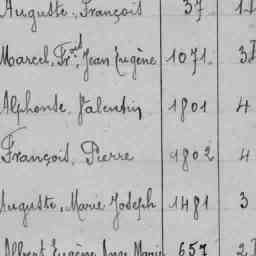 Auguste, François 37
Marcel, Fr.çois Jean Eugène 1071 3
Alphonse, Valentin 1801 4
François, Pierre 1802 4
Auguste, Marie Joseph 1481 3
Albert Eugène Ange Marie 657 2